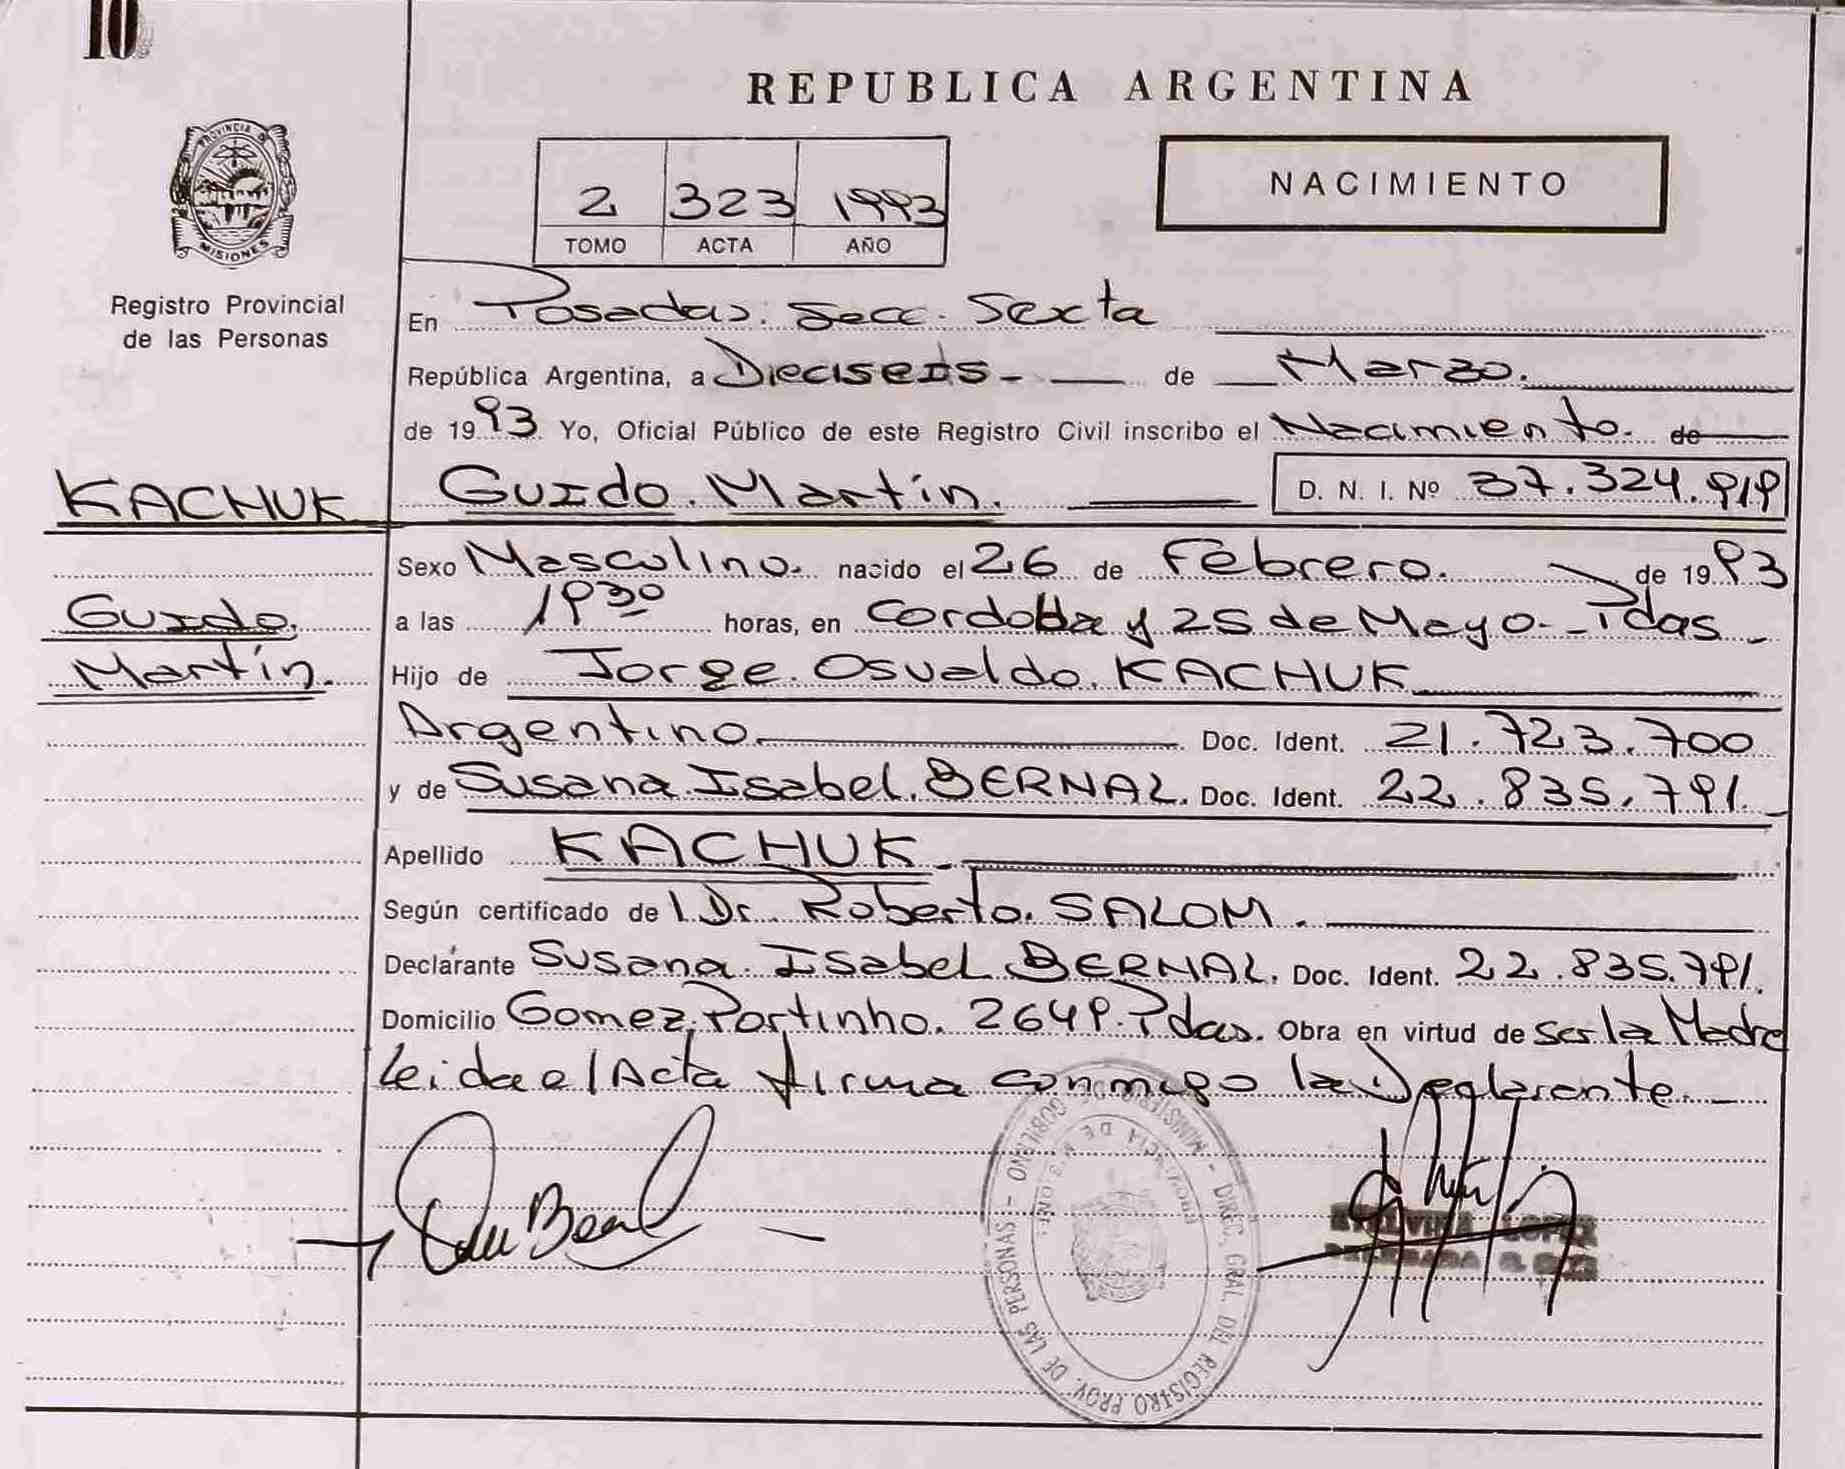 10
REPUBLICA ARGENTINA
PROVINCIA D MISIONES
Registro Provincial
de las Personas
2 323 1993
TOMO ACTA AÑO
NACIMIENTO
En Posadas. Secc. Sexta
República Argentina, a Dieciseis - de Marzo.
de 1993. Yo, Oficial Público de este Registro Civil inscribo el Nacimiento. de
KACHUK Guido. Martín. D. N. I. Nº 37.324.919
Sexo Masculino. nacido el 26 de Febrero. de 1993
Guido.
a las 19³⁰ horas, en Cordoba y 25 de Mayo. - Pdas -
Martín.
Hijo de Jorge. Osvaldo. KACHUK
Argentino. Doc. Ident. 21.723.700
y de Susana. Isabel. BERNAL. Doc. Ident. 22.835.791.
Apellido KACHUK.
Según certificado del Dr. Roberto. SALOM.
Declarante Susana. Isabel BERNAL. Doc. Ident. 22.835.791.
Domicilio Gomez. Portinho. 2649. Pdas. Obra en virtud de ser la Madre
Leida el Acta firma conmigo la Declarante.
MINISTERIO DE GOBIERNO - DIREC. GRAL. DEL REGISTRO PROV. DE LAS PERSONAS -
PROVINCIA DE MISIONES
LOPEZ